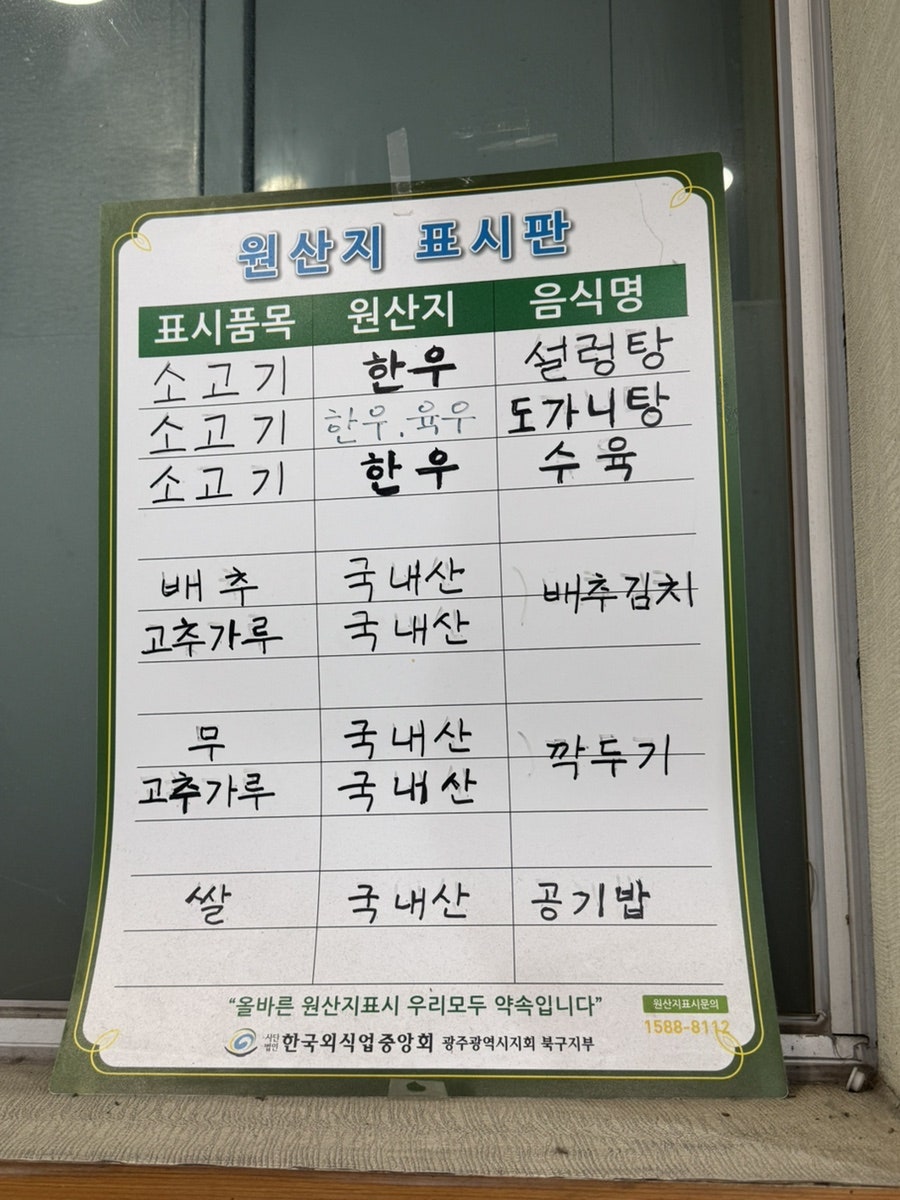 원산지 표시판
표시품목 원산지 음식명
소고기 한우 설렁탕
소고기 한우.육우 도가니탕
소고기 한우 수육
배추 국내산 배추김치
고추가루 국내산
무 국내산 깍두기
고추가루 국내산
쌀 국내산 공기밥
“올바른 원산지표시 우리모두 약속입니다”
원산지표시문의
1588-8112
사단법인 한국외식업중앙회 광주광역시지회 북구지부